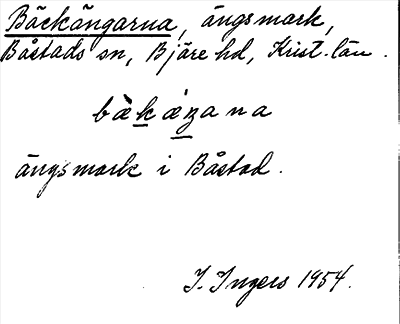 Bäckängarna, ängsmark,
Båstads sn, Bjäre hd, Krist. län.
bæ̀ḵǽŋ̱ana
ängsmark i Båstad.
I. Ingers 1954.